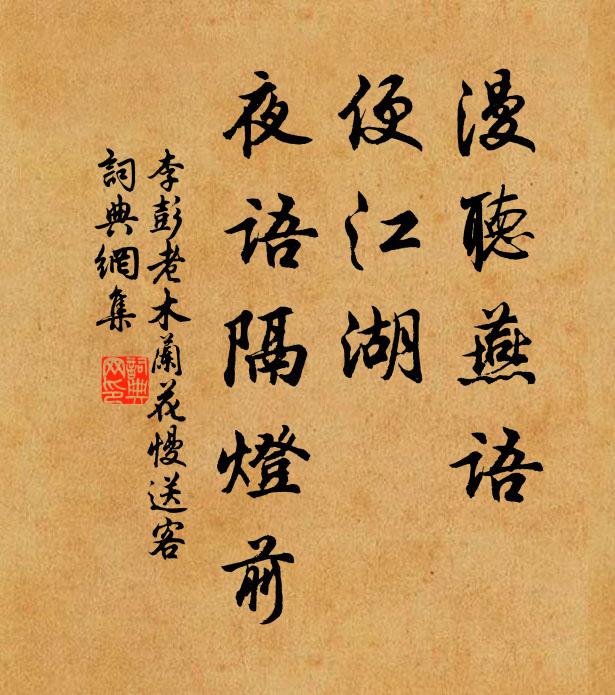 漫聽燕語
便江湖
夜語隔燈前
李彭老木蘭花慢送客
詞典網集
詞典網印